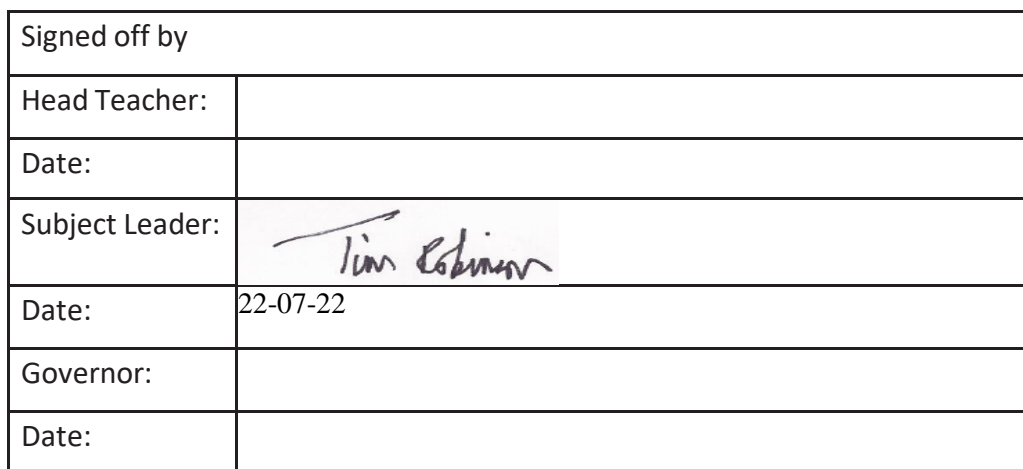 Signed off by
Head Teacher:
Date:
Subject Leader:
Tim Robinson
Date:
22-07-22
Governor:
Date: